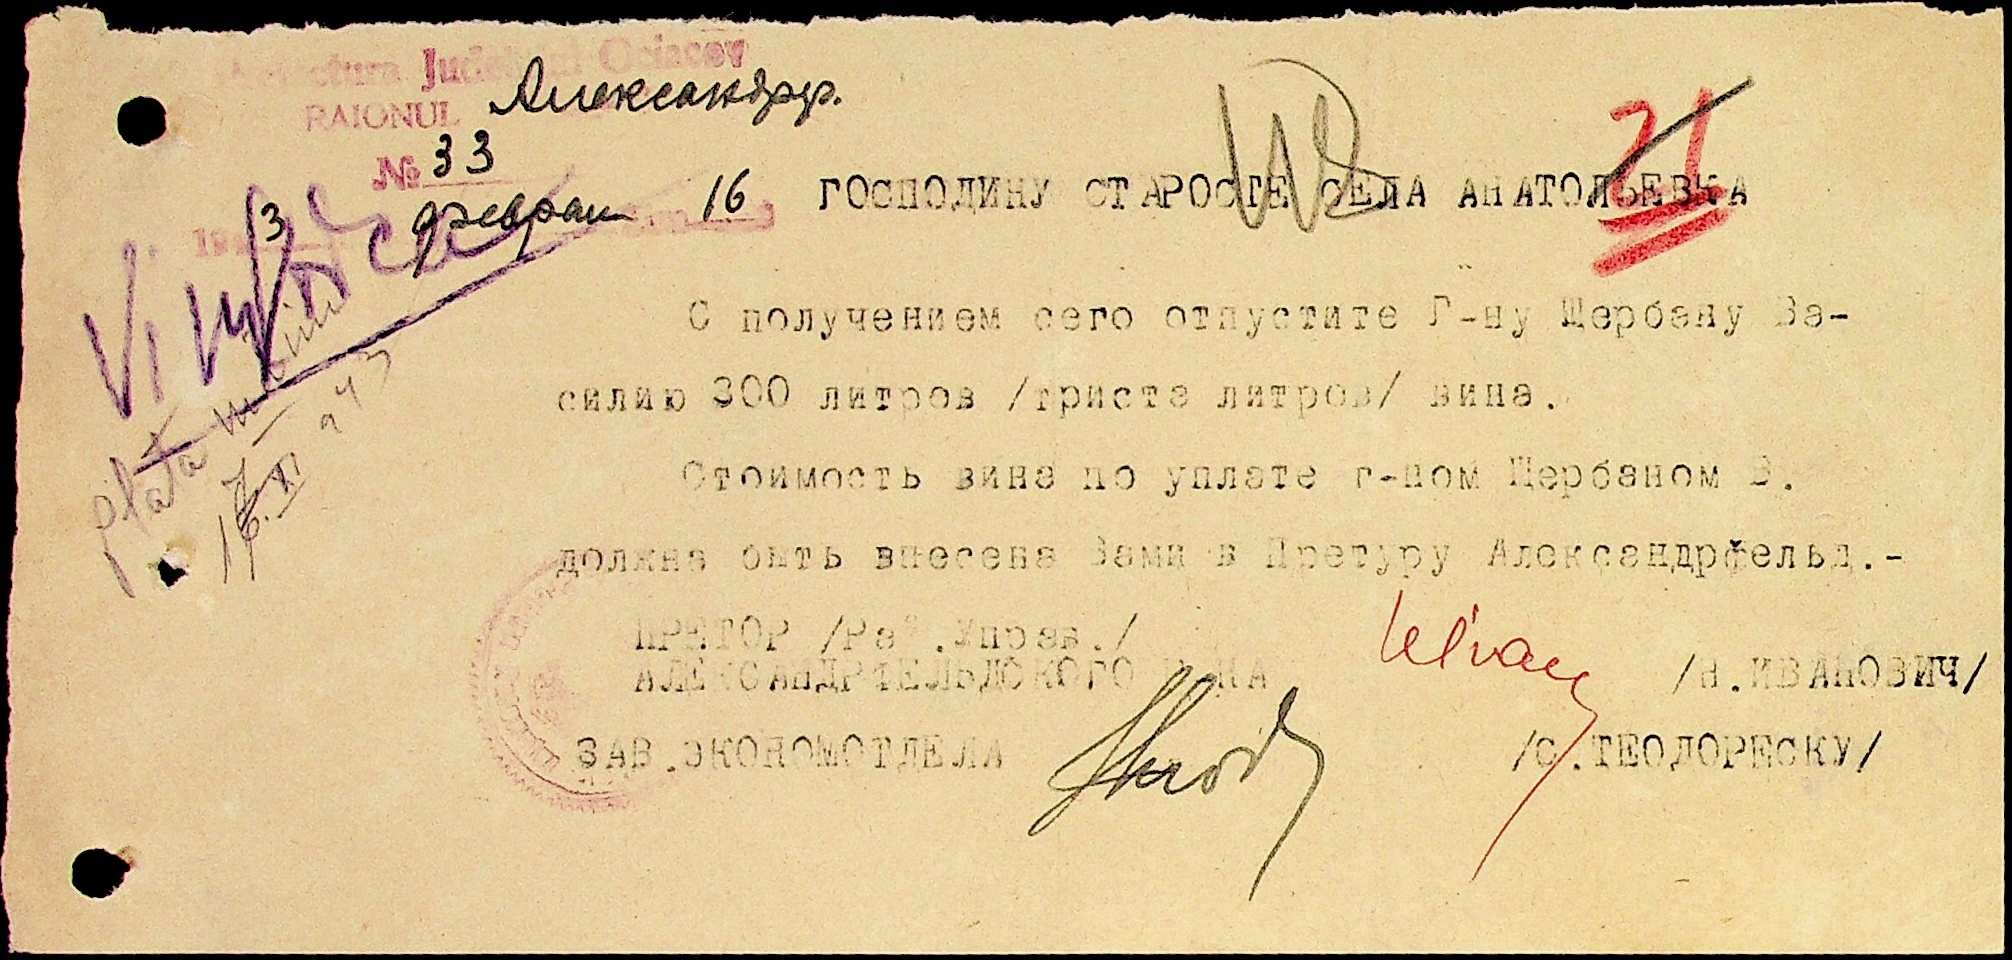 Prefectura Județului Ociacov
RAIONUL Александрф.
№ 33
1943 феврал 16
21
ГОСПОДИНУ СТАРОСТЕ СЕЛА АНАТОЛЬЕВКА
С получением сего отпустите Г-ну Щербану Ва-
силию 300 литров /триста литров/ вина.
Стоимость вина по уплате г-ном Щербаном В.
должна быть внесена Вами в Претуру Александрфельд.-
ПРЕТОР /Рай.Управ./
АЛЕКСАНДРФЕЛЬДСКОГО Р-НА /Н.ИВАНОВИЧ/
ЗАВ.ЭКОНОМОТДЕЛА /С.ТЕОДОРЕСКУ/
plata
943